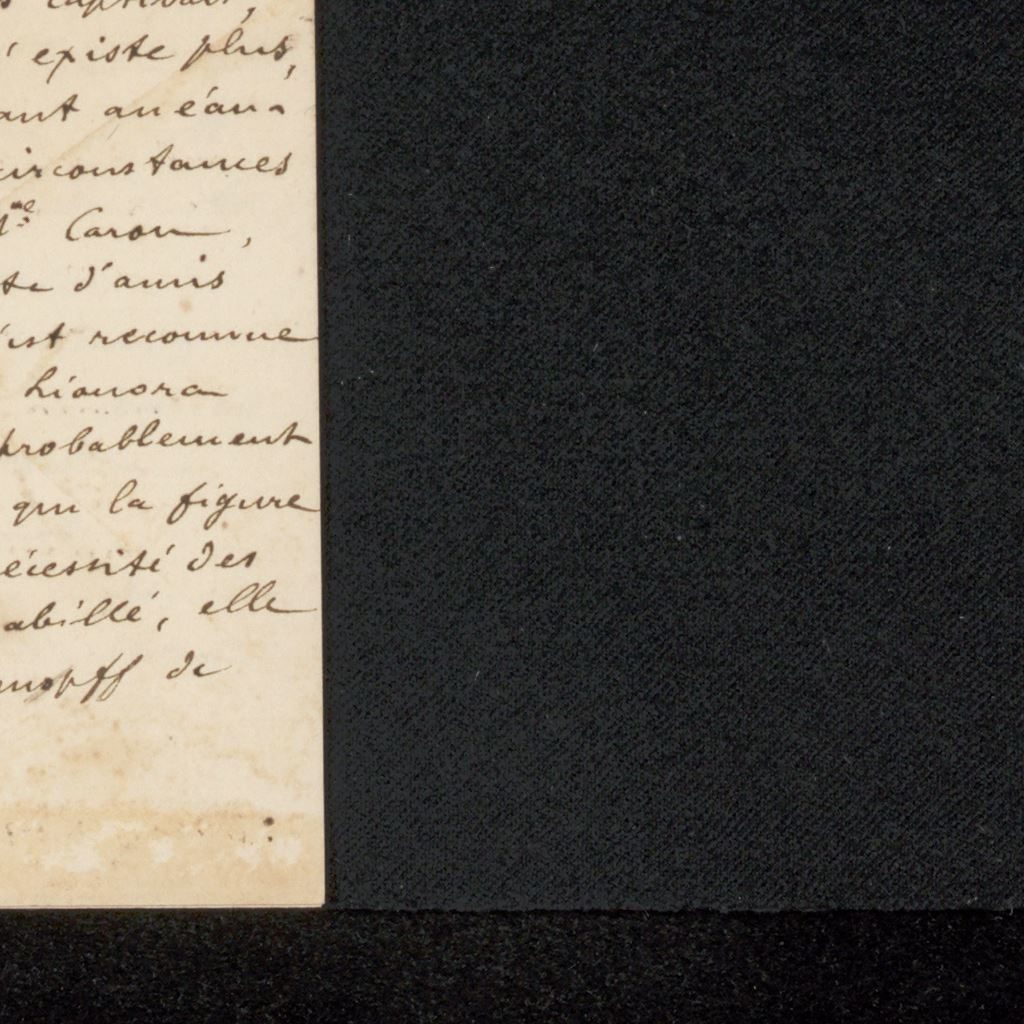 existe plus,
ant anéan-
circonstances
Caron,
te d'amis
est reconnue
honora
probablement
qui la figure
écessité des
abillé, elle
nopff de